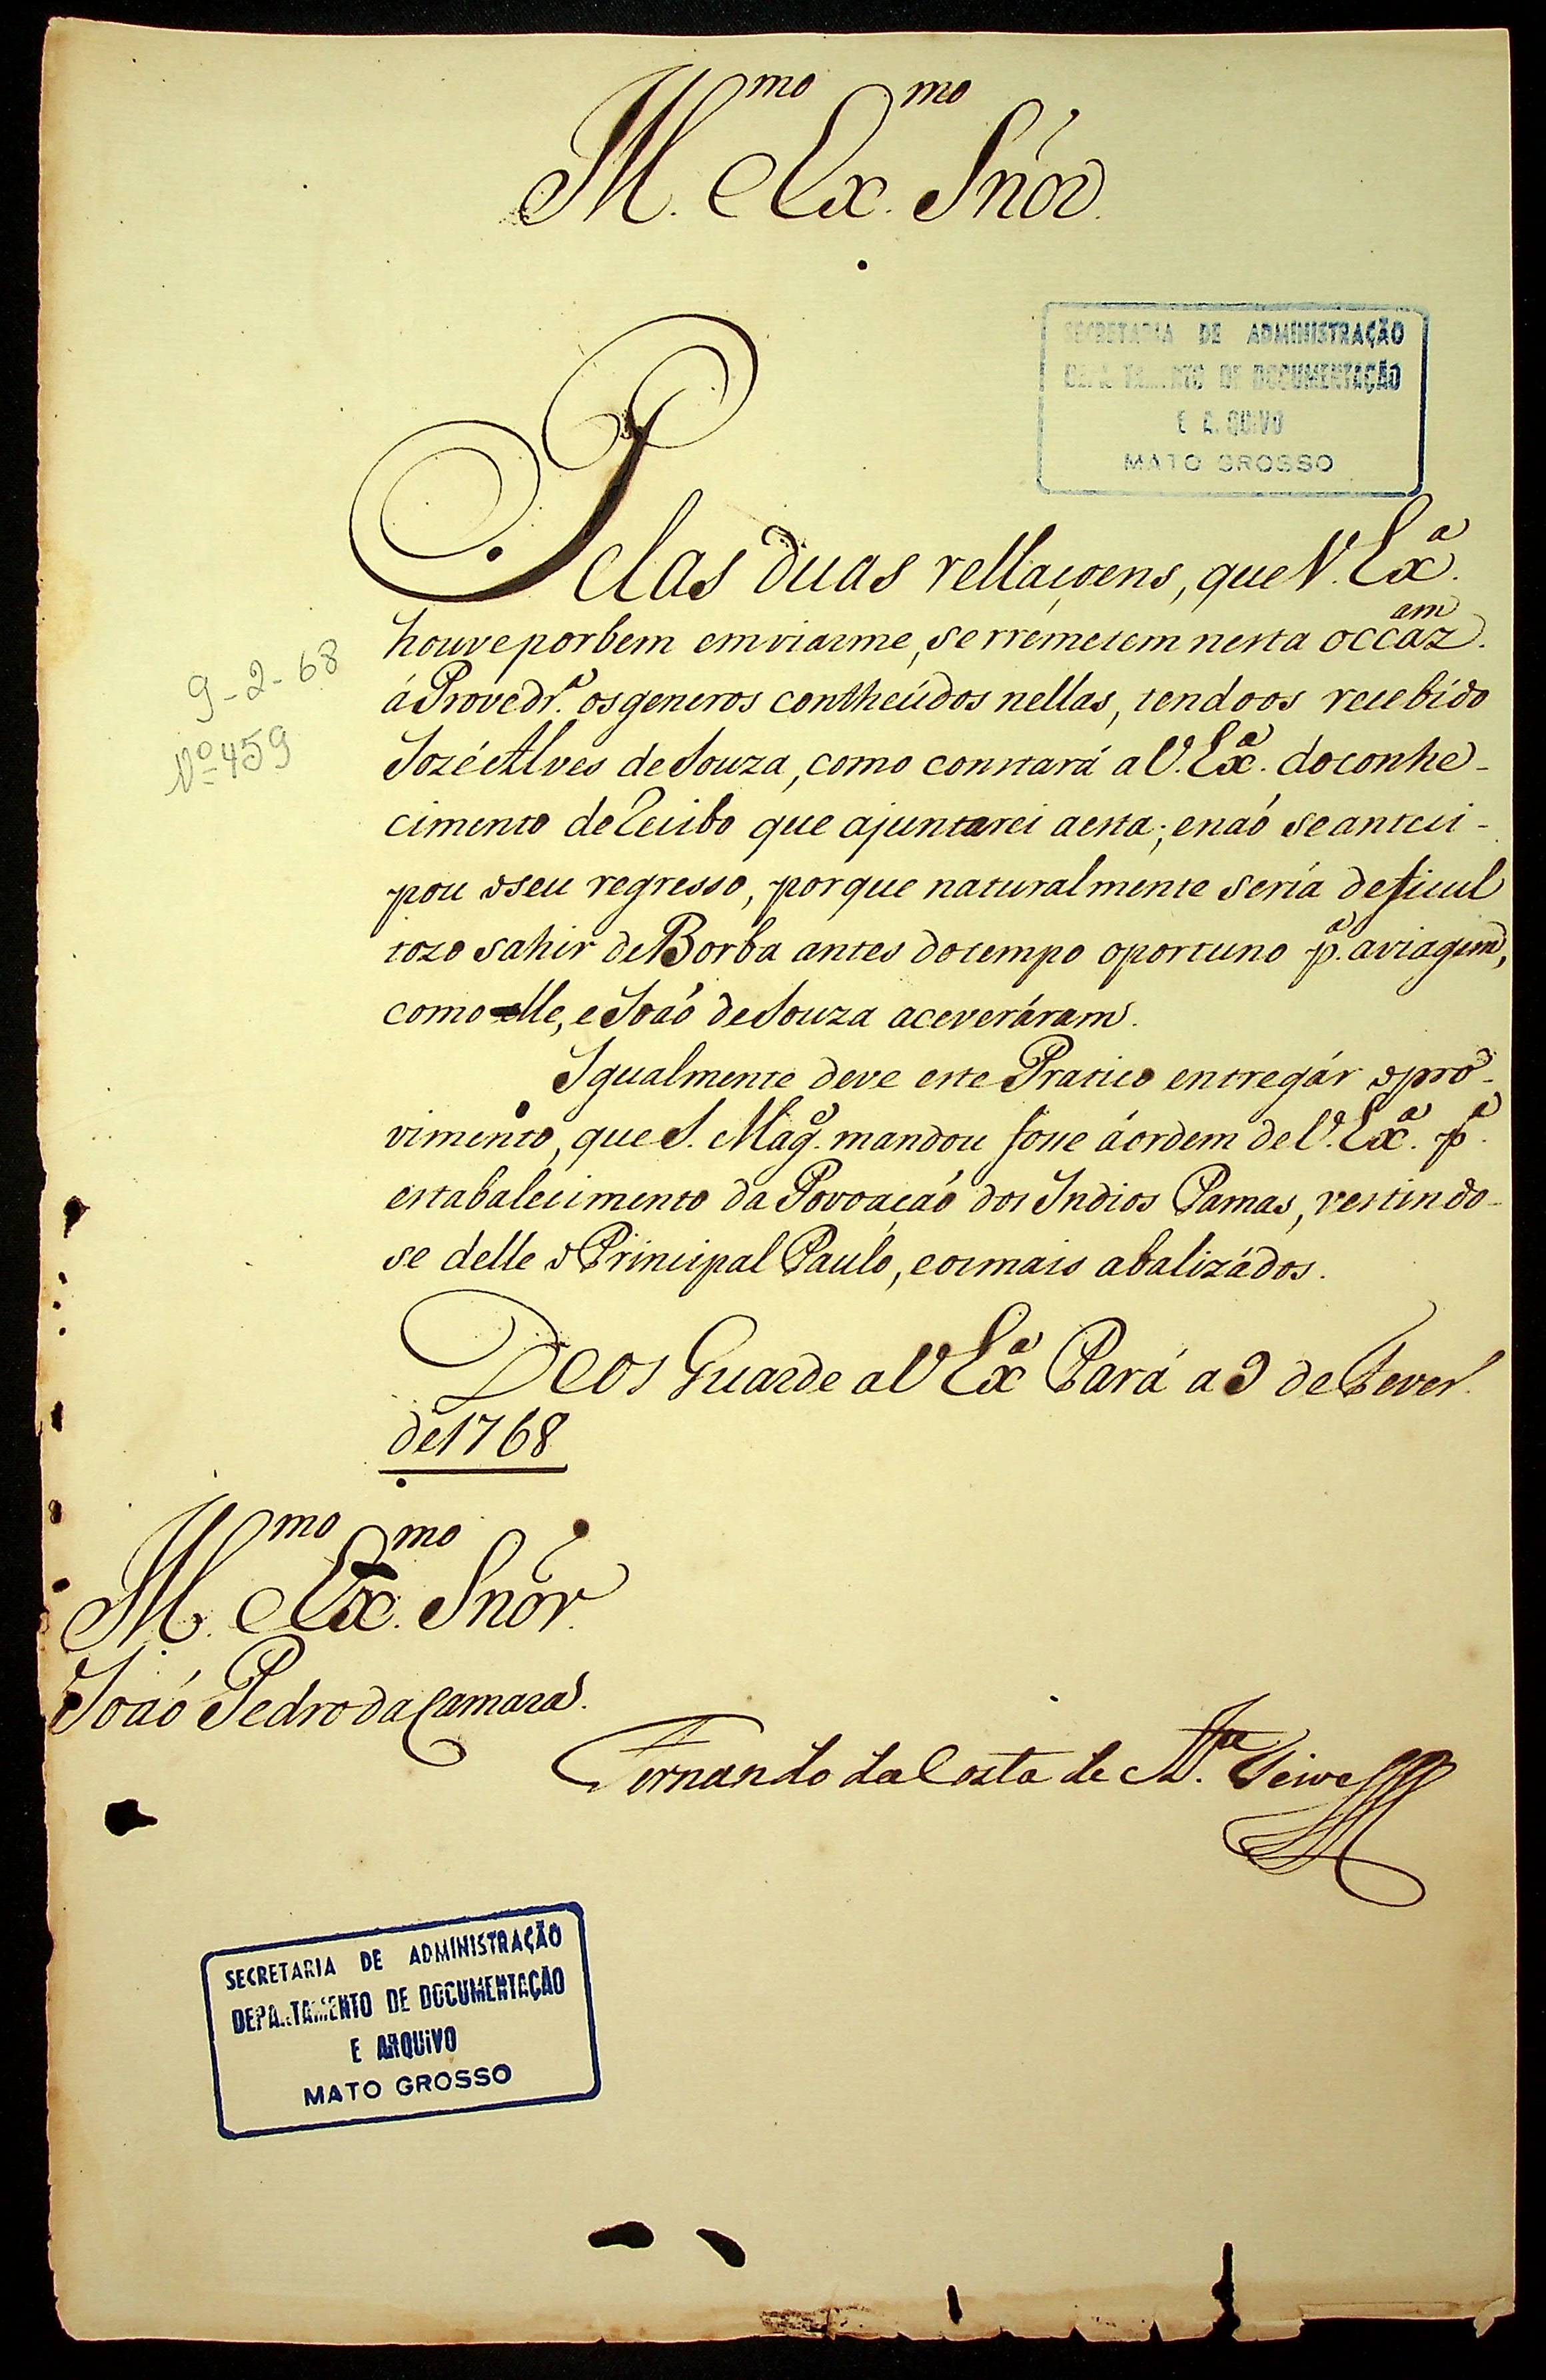 Ill.mo e Ex.mo Snõr.
SECRETARIA DE ADMINISTRAÇÃO
DEPARTAMENTO DE DOCUMENTAÇÃO
E ARQUIVO
MATO GROSSO
Pelas duas rellaçoens, que V. Ex.ª
houve por bem emviarme, se rremetem nesta occaz.am
á Provedr.ª os generos contheúdos nellas, tendo os recebido
Jozé Alves de Souza, como constará a V. Ex.ª do conhe-
cimento de recibo que ajuntarei a esta; e naó se anteci-
pou o seu regresso, porque naturalmente sería deficul
tozo sahir de Borba antes do tempo oportuno p.ª a viagem,
como elle, e Joaó de Souza aceveráram.
Igualmente deve este Pratico entregár o pro-
vimento, que S. Mag.e mandou fosse á ordem de V. Ex.ª p.ª
estabalecimento da Povoaçaó dos Indios Pamas, vestindo-
se delle o Principal Paulo, e os mais abalizádos.
Deos Guarde a V Ex.ª Pará a 9 de Fever.
de 1768
9-2-68
Nº 459
Ill.mo e Ex.mo Snõr.
Joaó Pedro da Camara.
Fernando da Costa de At.de Teive
SECRETARIA DE ADMINISTRAÇÃO
DEPARTAMENTO DE DOCUMENTAÇÃO
E ARQUIVO
MATO GROSSO